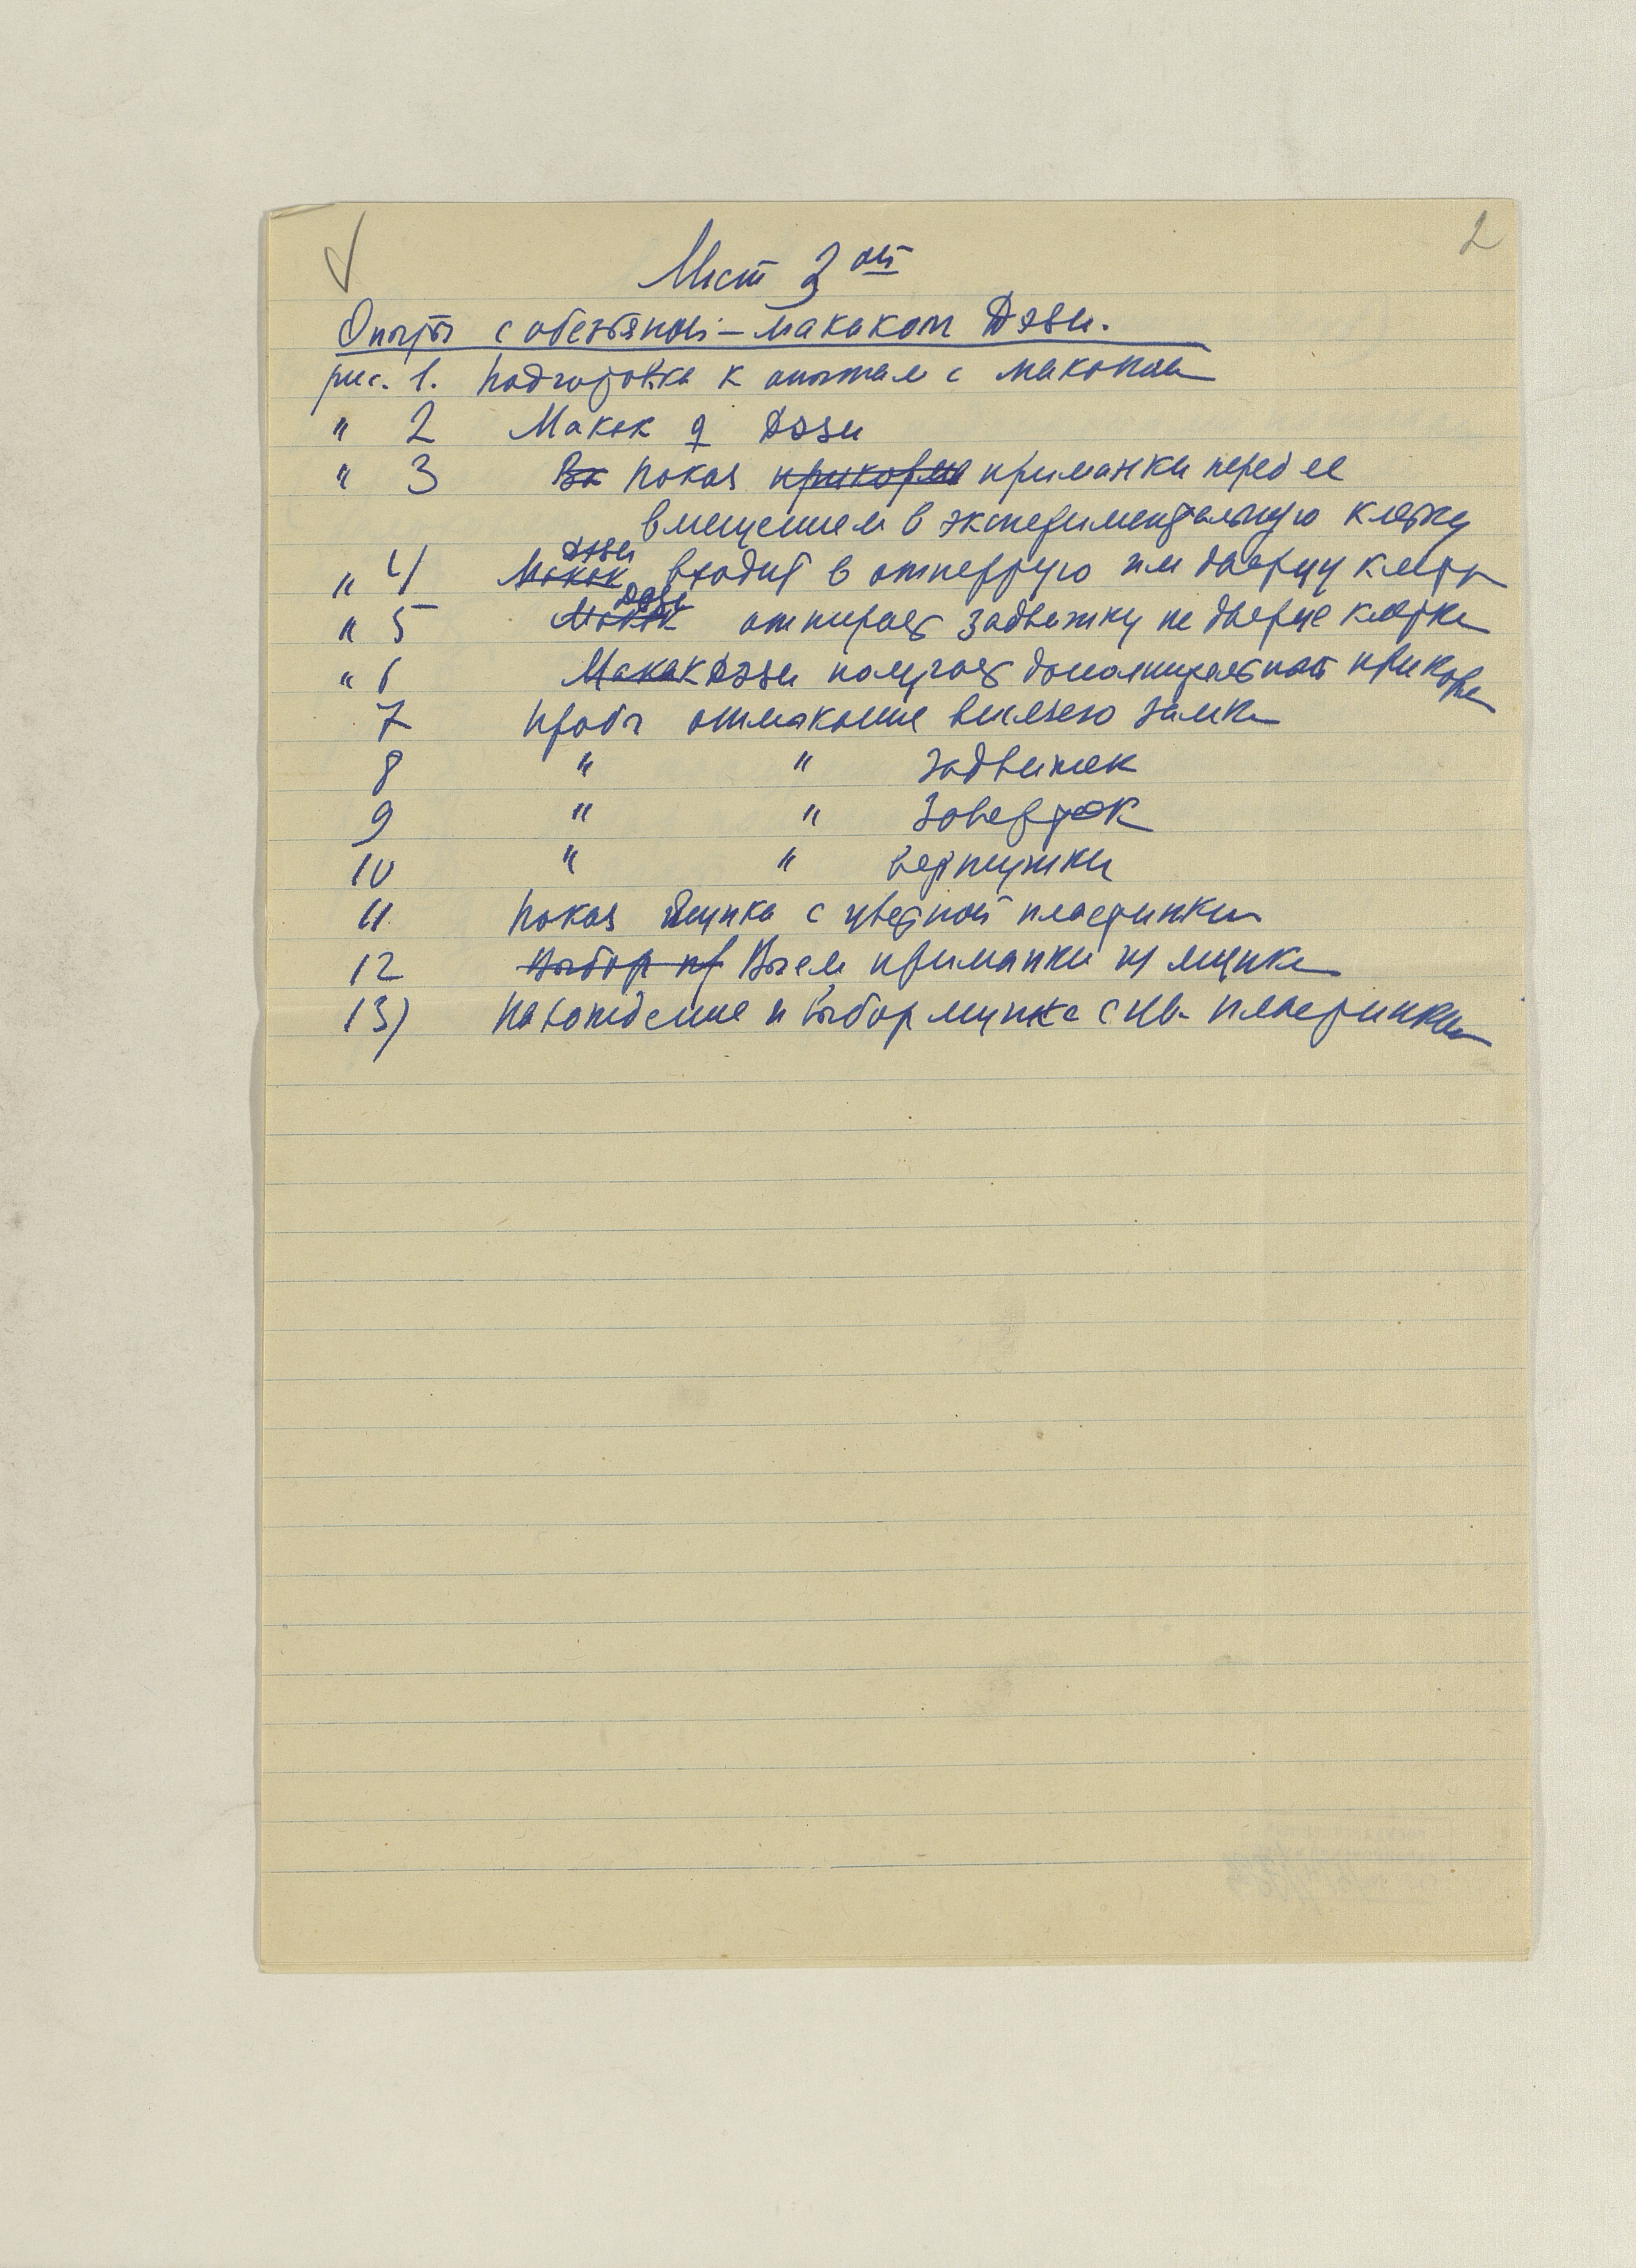 2
Лист 3ий
Опыты с обезьяной – макаком Дэзи.
рис. 1. Подготовка к опытам с макаком
" 2 Макак ♀ Дэзи
" 3 Вх Показ прикорма приманки перед ее
вмещением в экспериментальную клетку
Дэзи
" 4) Макак входит в отпертую им дверцу клетки
Дэзи
" 5 Макак отпирает задвижку на дверце клетки
" 6 Макак Дэзи получает дополнительный прикорм
7 Проба отмыкание висячего замка
8 " " задвижек
9 " " заверток
10 " " вертушки
11. Показ ящика с цветной пластинкой
12 Выбор пр Выем приманки из ящика
13) Нахождение и выбор ящика с цв. пластинкой